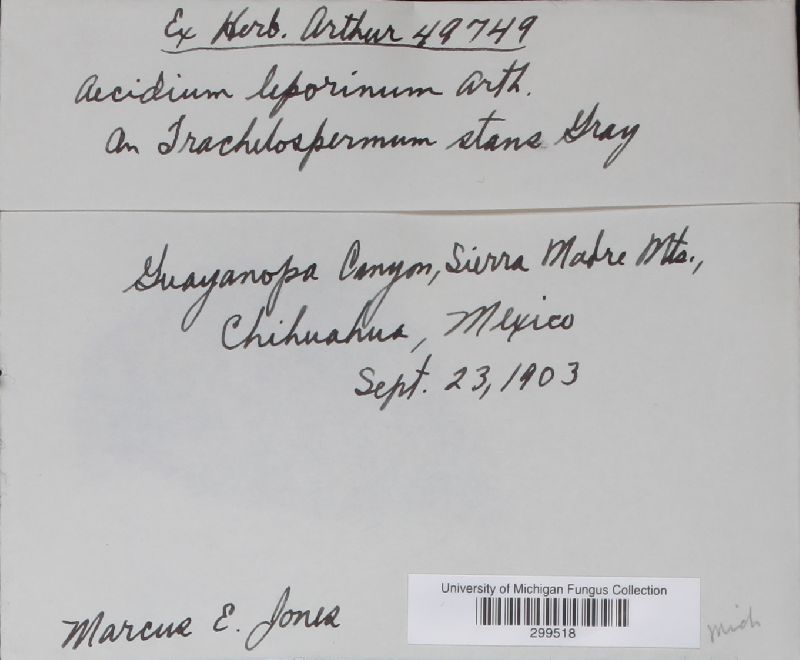 Ex Herb. Arthur 49749
Aecidium leporinum Arth.
On Trachelospermum stans Gray
Guayanopa Canyon, Sierra Madre Mts.,
Chihuahua, Mexico
Sept. 23, 1903
Marcus E. Jones
University of Michigan Fungus Collection
299518
Mich